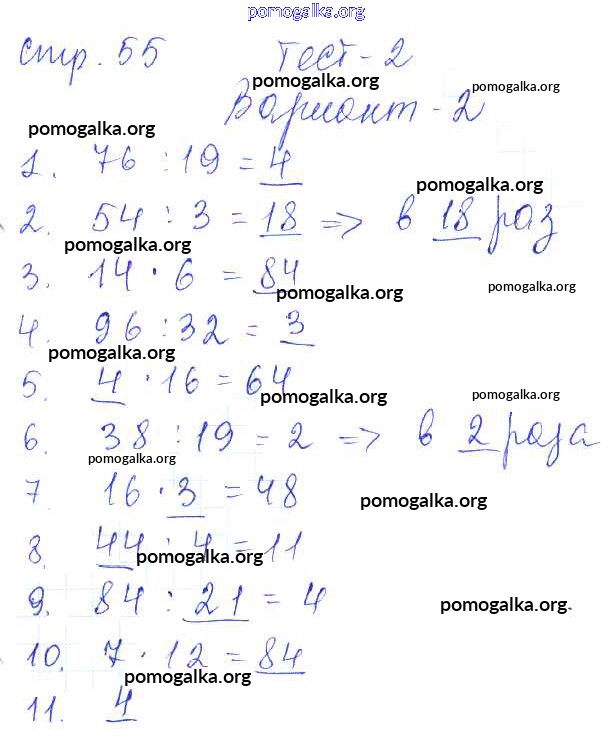 pomogalka.org
стр. 55 Тест - 2
pomogalka.org pomogalka.org
Вариант - 2
pomogalka.org
1. 76 : 19 = 4
pomogalka.org
2. 54 : 3 = 18 => в 18 раз
pomogalka.org
3. 14 · 6 = 84
pomogalka.org pomogalka.org
4. 96 : 32 = 3
pomogalka.org
5. 4 · 16 = 64
pomogalka.org pomogalka.org
6. 38 : 19 = 2 => в 2 раза
pomogalka.org
7 16 · 3 = 48
pomogalka.org
8. 44 : 4 = 11
pomogalka.org
9. 84 : 21 = 4
pomogalka.org
10. 7 · 12 = 84
pomogalka.org
11. 4